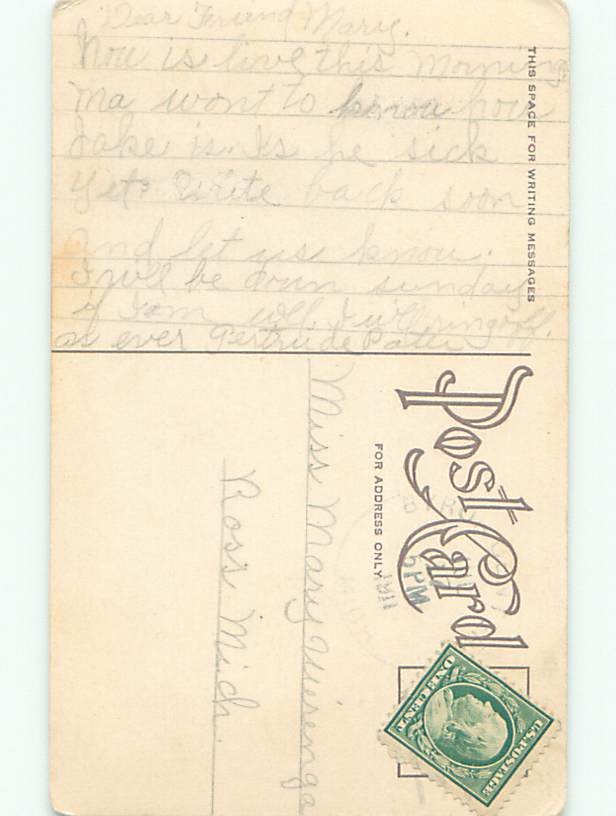 Dear Friend Mary.
How is live this morning
ma wont to know how
Jake is. Is he sick
yet. Write back soon
and let us know.
I will be down sunday
if I am well. I will ring off.
as ever Gertrude
THIS SPACE FOR WRITING MESSAGES
Post Card
FOR ADDRESS ONLY.
Miss Mary Wierenga
Ross Mich.
BYRO
5 PM
U.S. POSTAGE
ONE CENT